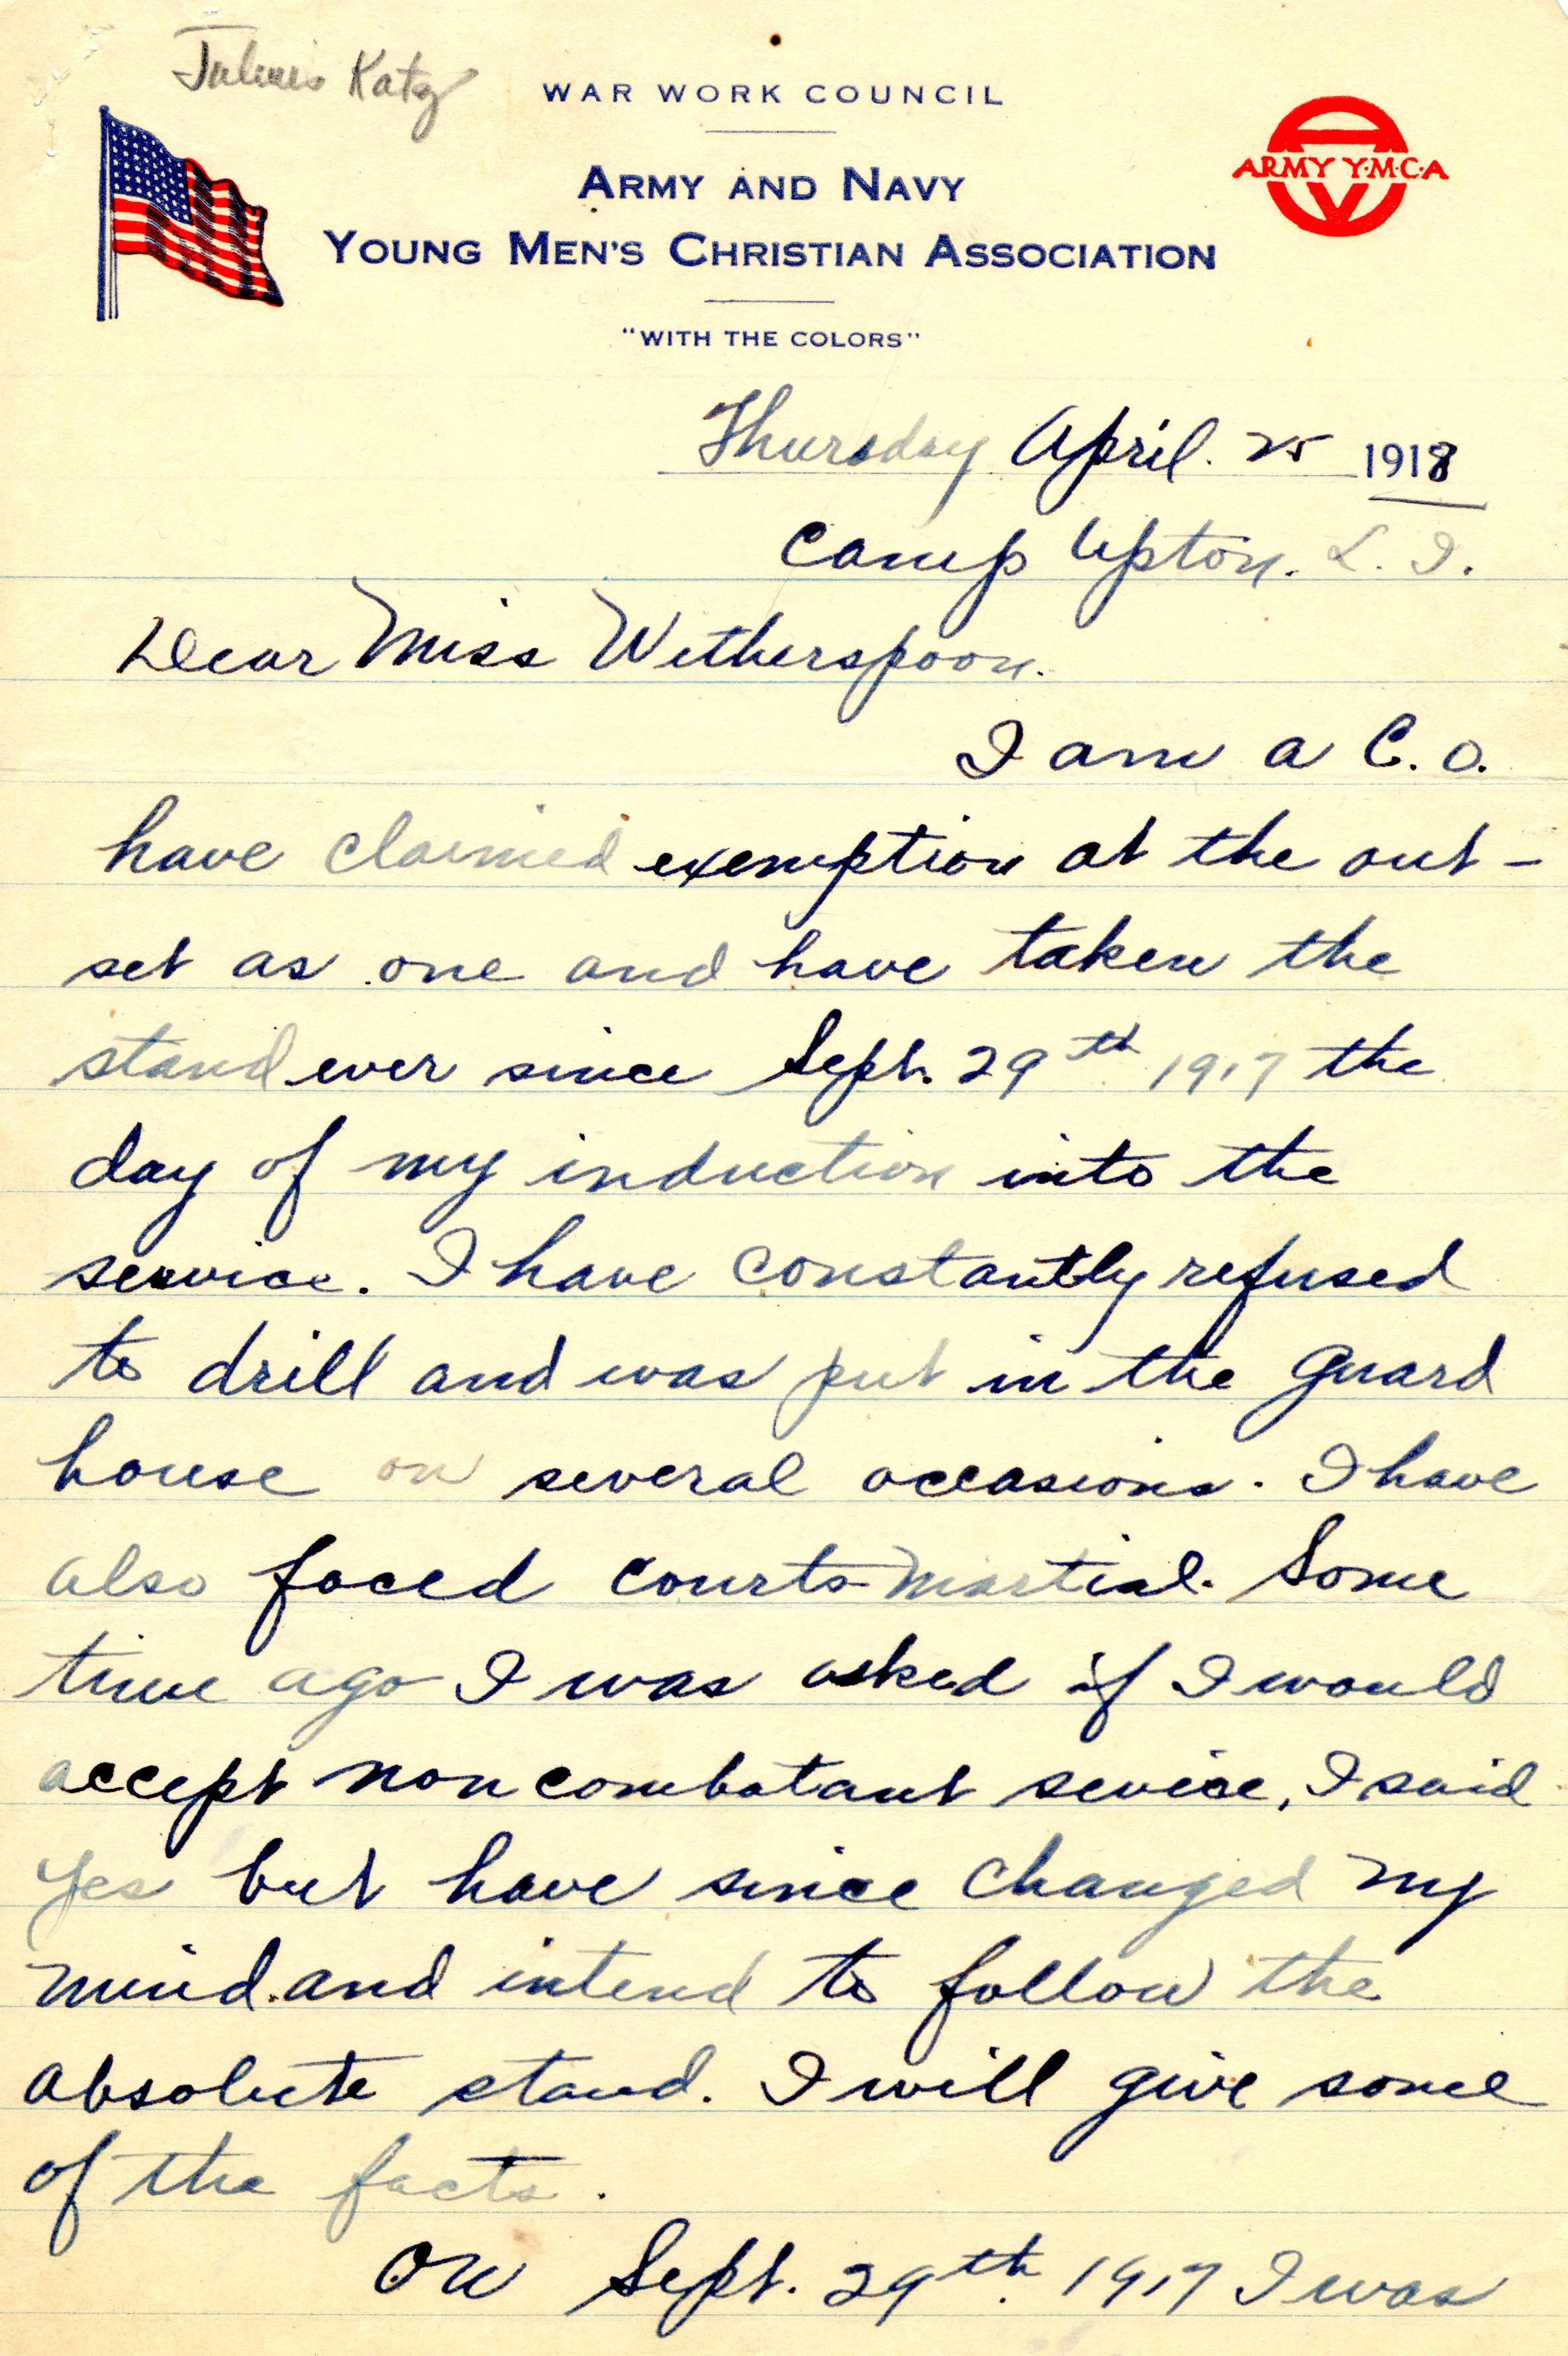 Julius Katz
WAR WORK COUNCIL
ARMY AND NAVY
YOUNG MEN'S CHRISTIAN ASSOCIATION
"WITH THE COLORS"
ARMY Y·M·C·A
Thursday April. 25 1918
Camp Upton. L. I.
Dear Miss Wetherspoon.
I am a C. O.
have claimed exemption at the out-
set as one and have taken the
stand ever since Sept. 29th 1917 the
day of my induction into the
service. I have constantly refused
to drill and was put in the guard
house on several occasions. I have
also faced courts-martial. Some
time ago I was asked if I would
accept noncombatant sevice, I said
yes but have since changed my
mind.and intend to follow the
absolute stand. I will give some
of the facts.
On Sept. 29th. 1917 I was